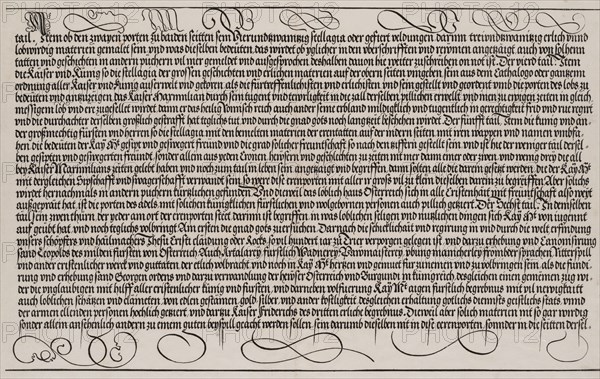 tail. Item ob den zwayen porten zu baiden seitten sein Vierundzwaintzig stellagia oder gefiert veldungen darinn treiundzwaintzig erlich vnnd
lobwirdig materien gemalet sein vnd was dieselben bedeuten das wirdet ob yglicher in den vberschrifften vnd reymen angetzaigt auch von solhenn
tatten vnd geschichten in andern puchern vil mer gemeldet vnd aussgesprochen deshalben dauon hie weitter zuschreiben on not ist. Der vierd tail. Item
die kaiser vnd kunig so die stellagia der grossen geschichten vnd erlichen materien auf der obern seitten vmgeben sein aus dem Cathalogo oder gantzem
ordnung aller kaiser vnd kunig ausserwelt vnd geborn als die furtreffenlichisten vnd erlichisten vnd sein gestellt vnd geordent vmb die porten des lobs zu
bedeuten vnd antzuzaigen das kaiser Maximilian durch sein tugent vnd teurlichait in die zall derselben pillichen erwelt vnd inen zu ewigen zeiten in gleich
messigem lob vnd er zugesellet wirdet dann er des heiligen romischen reich auch ander seine erbland miltigklich vnd tugentlich in gerechtigkait frid vnd rue regirt
vnd die durchachter derselben groslich gestrafft hat teglichs tut vnd durch die gnad gots noch langzeit beschehen wirdet. Der funfft tail. Item die kunig vnd
der grosmechtig fursten vnd herren so die stellagia mit den bemelten materien der erentatten auf der indern seiten mit iren wappen vnd namen vmbfa-
hen die bedeuten der kay. Mt. gesipt vnd geswegert freund vnd die grad solicher freuntschafft so nach den ziffern gestellt sein vnd ist hie der weniger tail dersel-
ben gesipten vnd geswegerten freundt sonder allein aus yeden Cronen heusern vnd geschlechten zu zeiten mit mer dann einer oder zwen vnd wenig drey die all
bey kaiser Maximilians zeiten gelebt haben vnd noch zum tail im leben sein angetzaigt vnd begriffen dann solten alle die darein gesetzt werden die der kay. Mt.
mit dergleichen Sypschafft vnd swagerschafft verwandt sind so were dise erenporten mit aller yr gros vil zu klein dieselben darein zu begreiffen aber solichs
wirdet hernachmals in andern puchern kurtzlichen gefunden vnd dieweil das loblich haus Osterreich sich in all Cristenhait mit freuntschafft also weyt
aussgeprait hat ist die porten des adels mit solichen kunigklichen furstlichen vnd wolgebornen personen auch pillich getziert. Der Sechst tail. In demselben
tail sein zwen thurn der yeder am ort der erenporten steet darinn ist begriffen in was loblichen seligen vnd nutzlichen dingen sich kay. Mt. von iugennt
auf geubt hat vnd noch teglichs volbringt Am ersten die gnad gots zuersuchen. Darnach die schicklichait vnd regirung in vnd durch die welt erfindung
vnsers schopffers vnd hailmachers Jhesu Cristi claidung oder Rocks so vil hundert iar zu Trier verporgen gelegen ist vnd dartzu erhebung vnd Canonisirung
sand Leopolds des milden fursten von Osterreich Auch Artalarey furstlich
vnd ander cristenlicher werck vnd guttatten der etlich volbracht vnd noch in kay. Mt. hertzen vnd gemuet fur zunemen vnd zu volbringen sein als die fundie-
rung vnd erhebung sand Jorgen ordens vnd dartzu verwandlung der heuser Osterreich vnd Burgundi in kunigreich desgleichen einen gemeinen zug wi-
der die vnglaubigen mit hilff aller cristenlicher kunig vnd fursten vnd darneben volfuerung kay. Mt. aigen furstlich begrebnus mit vil
auch loblichen schatzen vnd clainoten von edlen gestainen gold silber vnd ander kostligkeit desgleichen erhaltung gotlichs dienst geistlichs stats vnnd
der armen ellenden personen hochlich getziert vnd dartzu kaiser Friderichs des dritten erliche begrebnus. Dieweil aber solich materien mit so gar wirdig
sonder allein ansehenlich andern zu einem guten beyspill geacht werden sollen sein darumb dieselben mit in dise eerenporten sonnder in die seitten dersel-